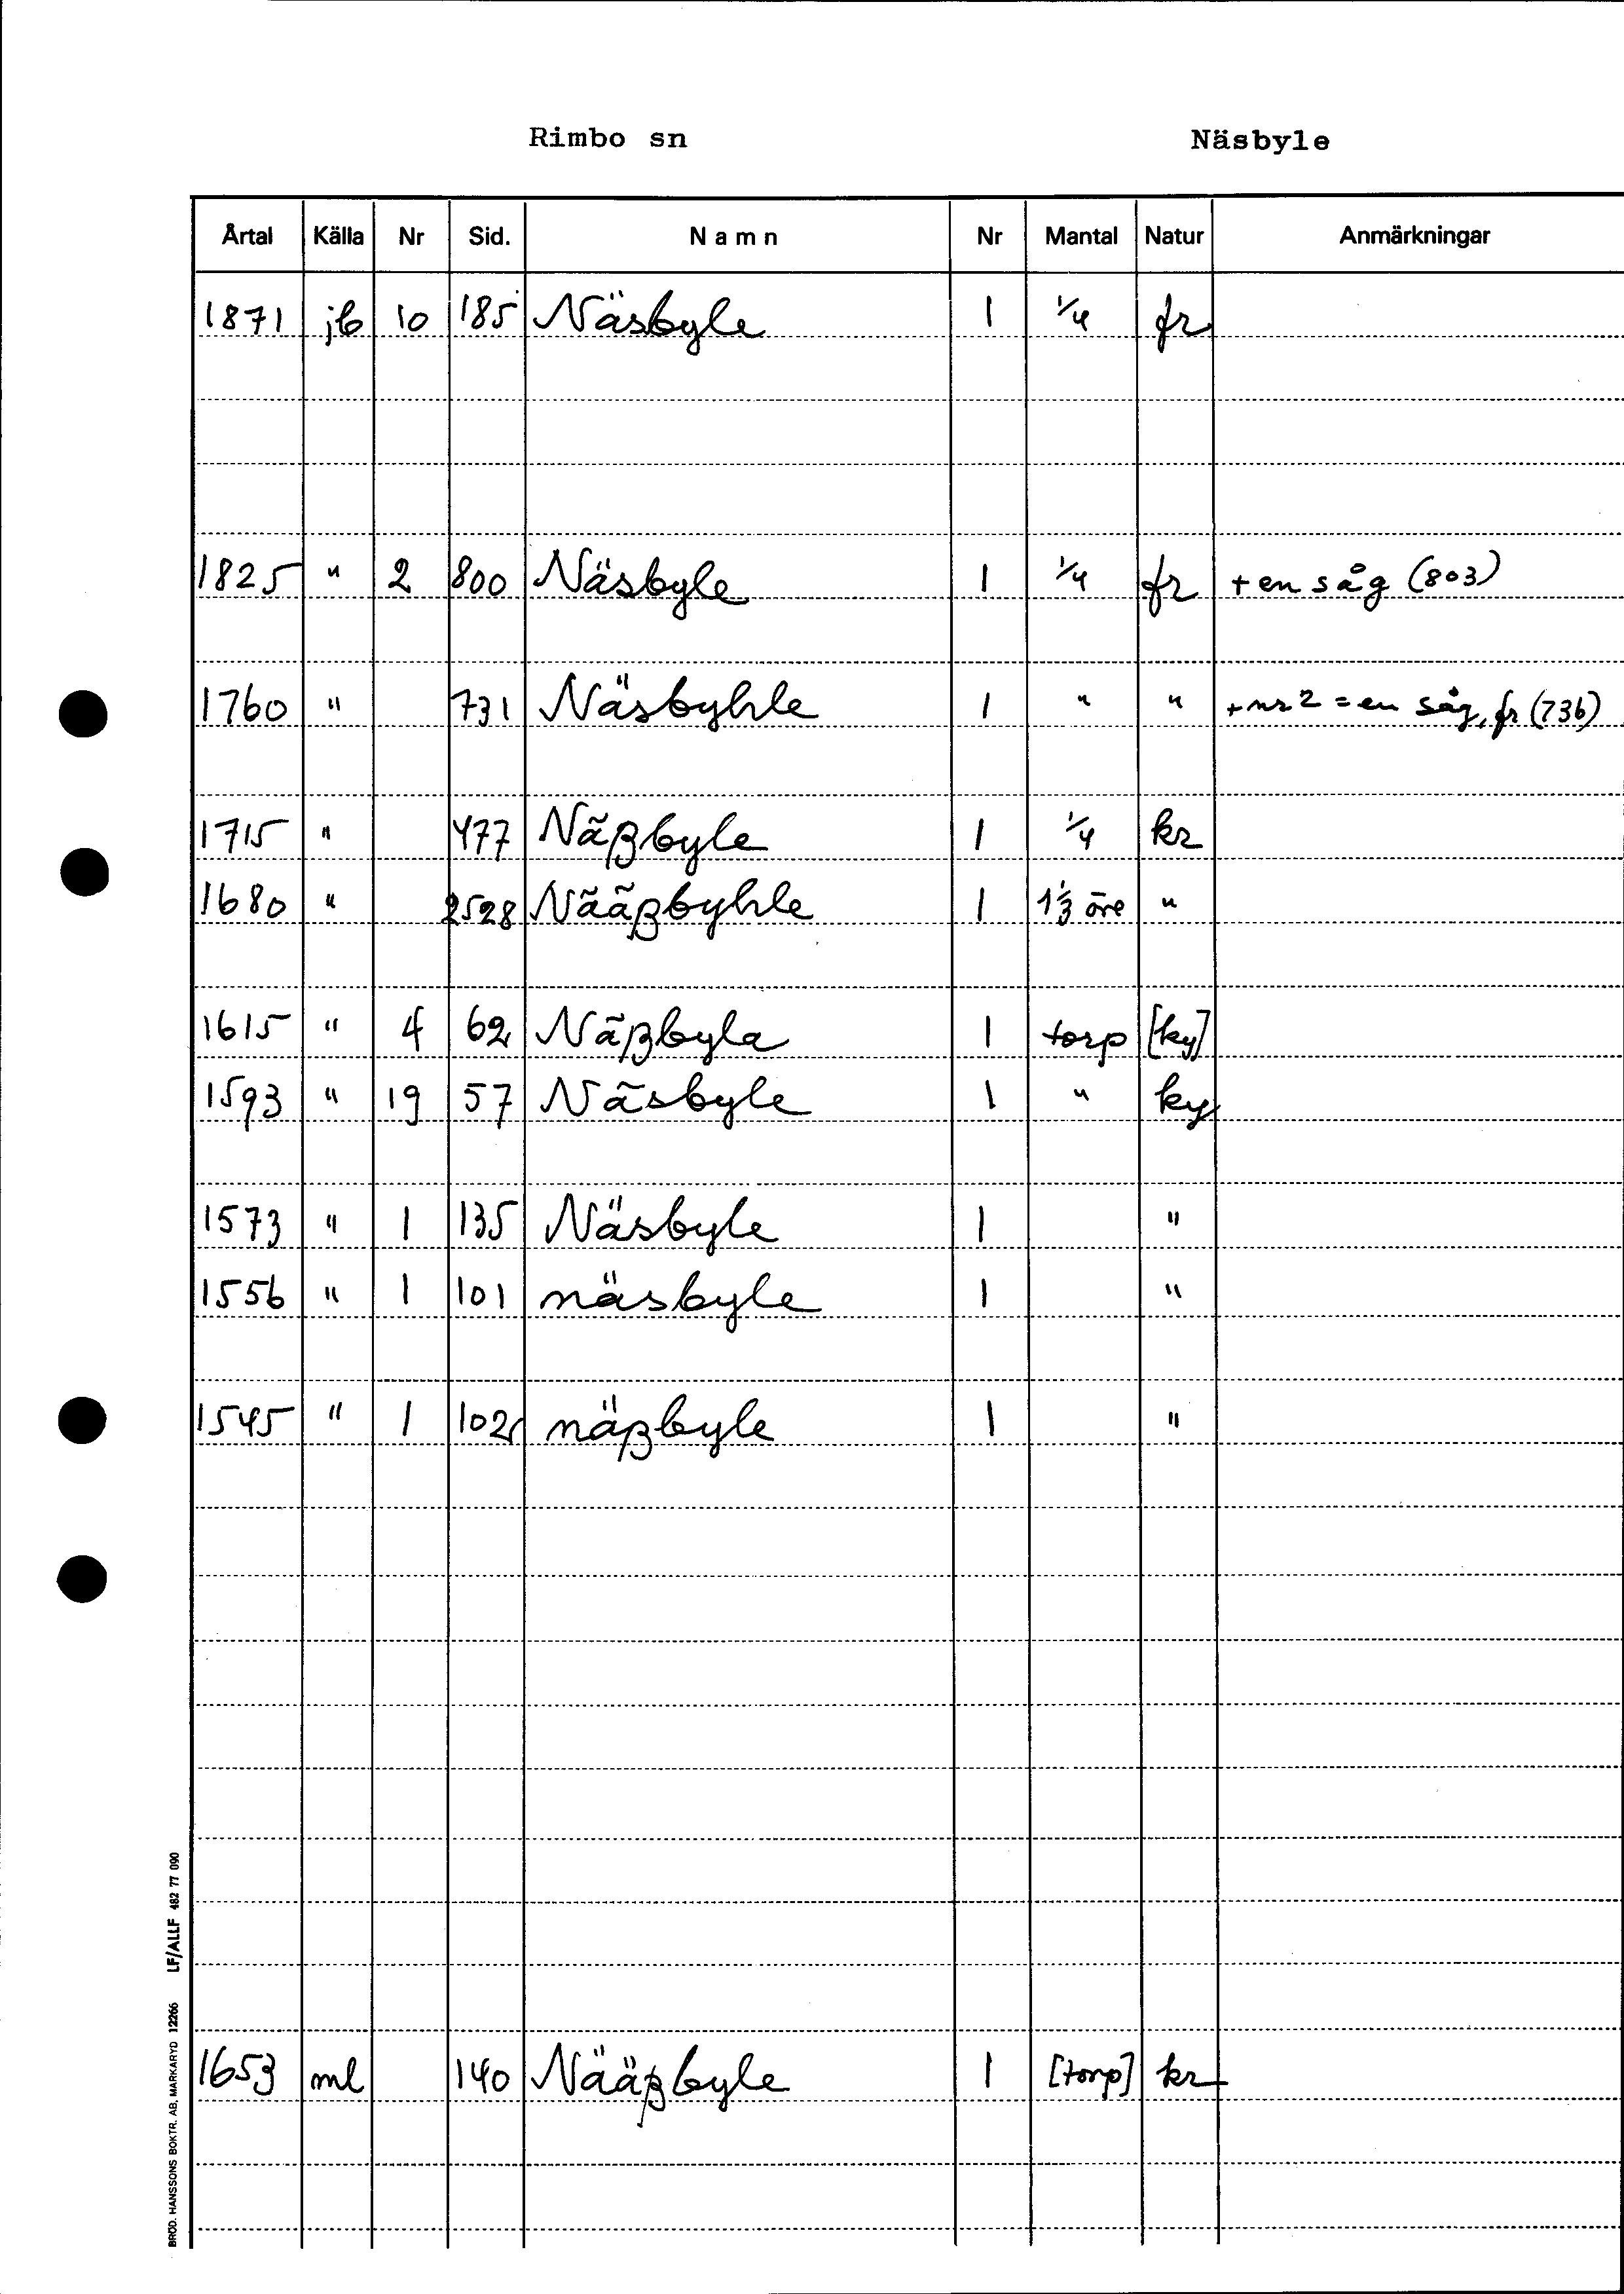 Rimbo sn Näsbyle
Årtal Källa Nr Sid. Namn Nr Mantal Natur Anmärkningar
1871 jb 10 185 Näsbyle 1 1/4 fr
1825 " 2 800 Näsbyle 1 1/4 fr + en såg (803)
1760 " 731 Näsbyhle 1 " " + nr 2 = en såg, fr (736)
1715 " 477 Nãßbyle 1 1/4 kr
1680 " 2528 Nããßbyhle 1 1 1/3 öre "
1615 " 4 62 Nãßbyla 1 torp [ky]
1593 " 19 57 Nãsbyle 1 " ky
1573 " 1 135 Näsbyle 1 "
1556 " 1 101 näsbyle 1 "
1545 " 1 102 näßbyle 1 "
1653 ml 140 Nääßbyle 1 [torp] kr
BRÖD. HANSSONS BOKTR. AB, MARKARYD 12266 LF/ALLF 482 77 090